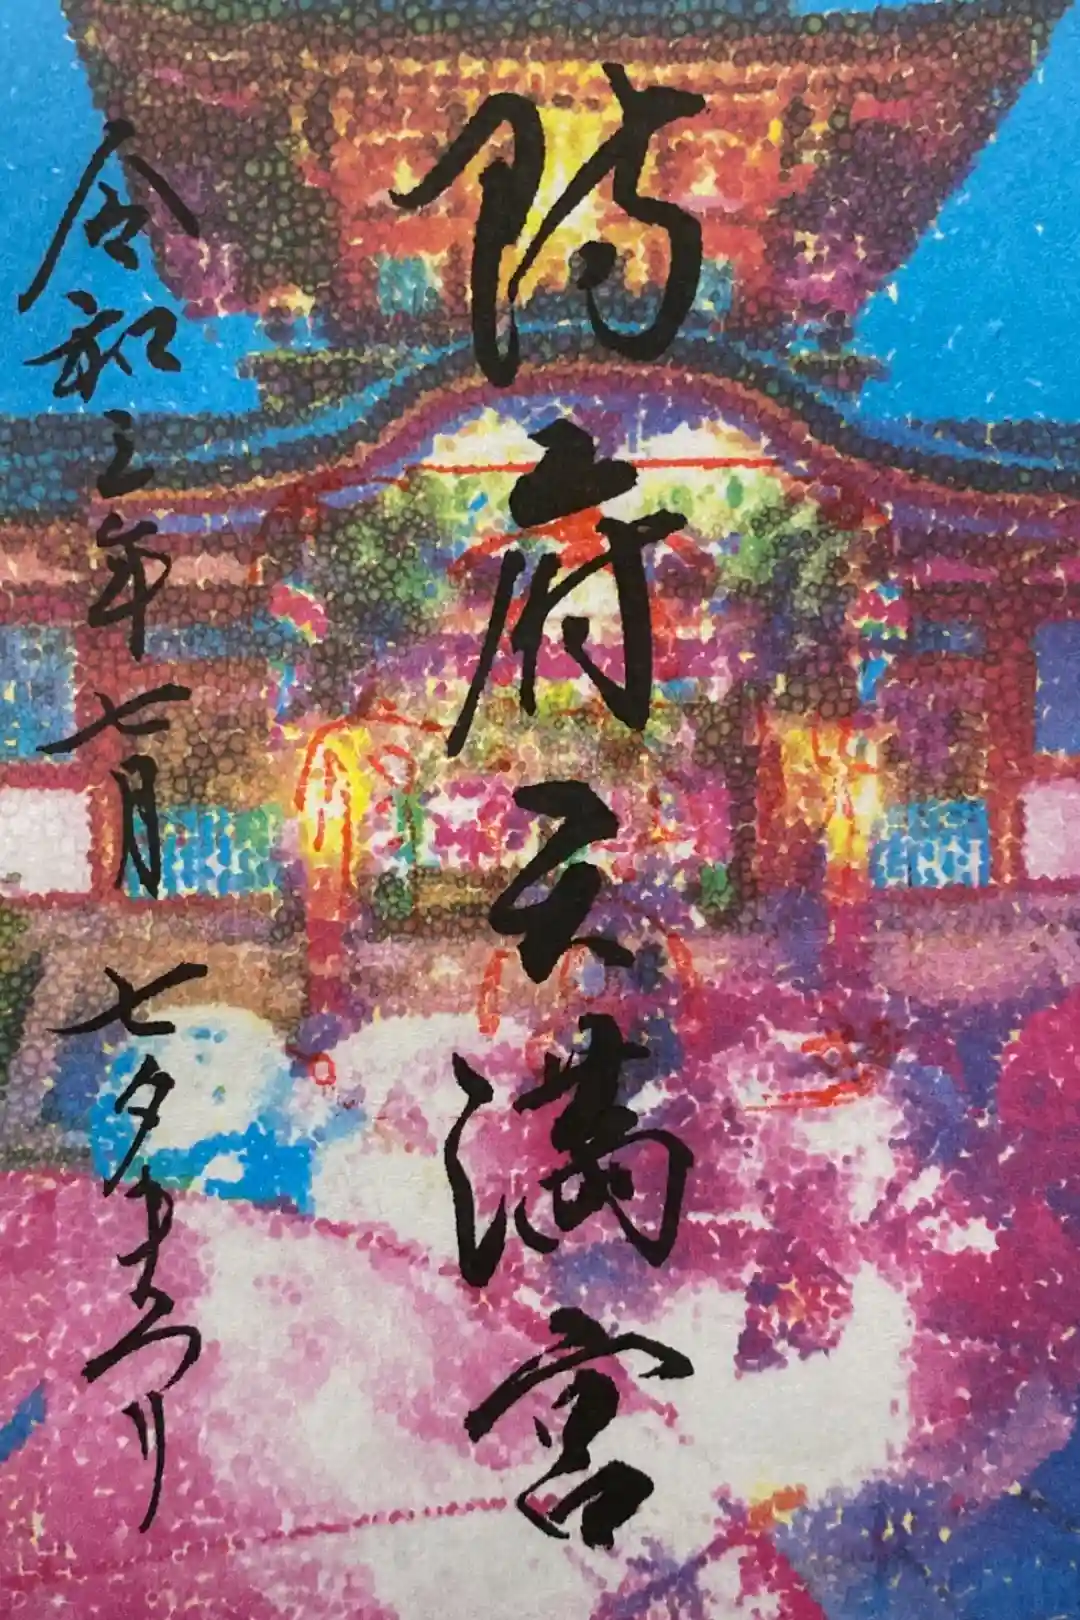 防府天満宮
令和三年七月 七夕まつり